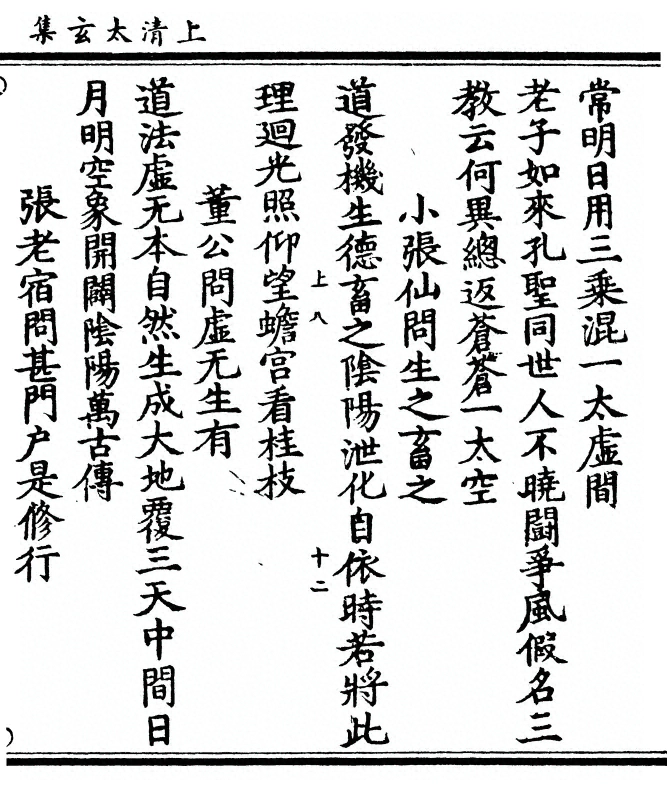 上清太玄集
常明日用三乘混一太虛間
老子如來孔聖同世人不曉鬪爭風假名三
教云何異總返蒼蒼一太空
小張仙問生之畜之
道發機生德畜之陰陽泄化自依時若將此
上八
十二
理迴光照仰望蟾宮看桂枝
董公問虛无生有
道法虛无本自然生成大地覆三天中間日
月明空象開闢陰陽萬古傳
張老宿問甚門户是修行